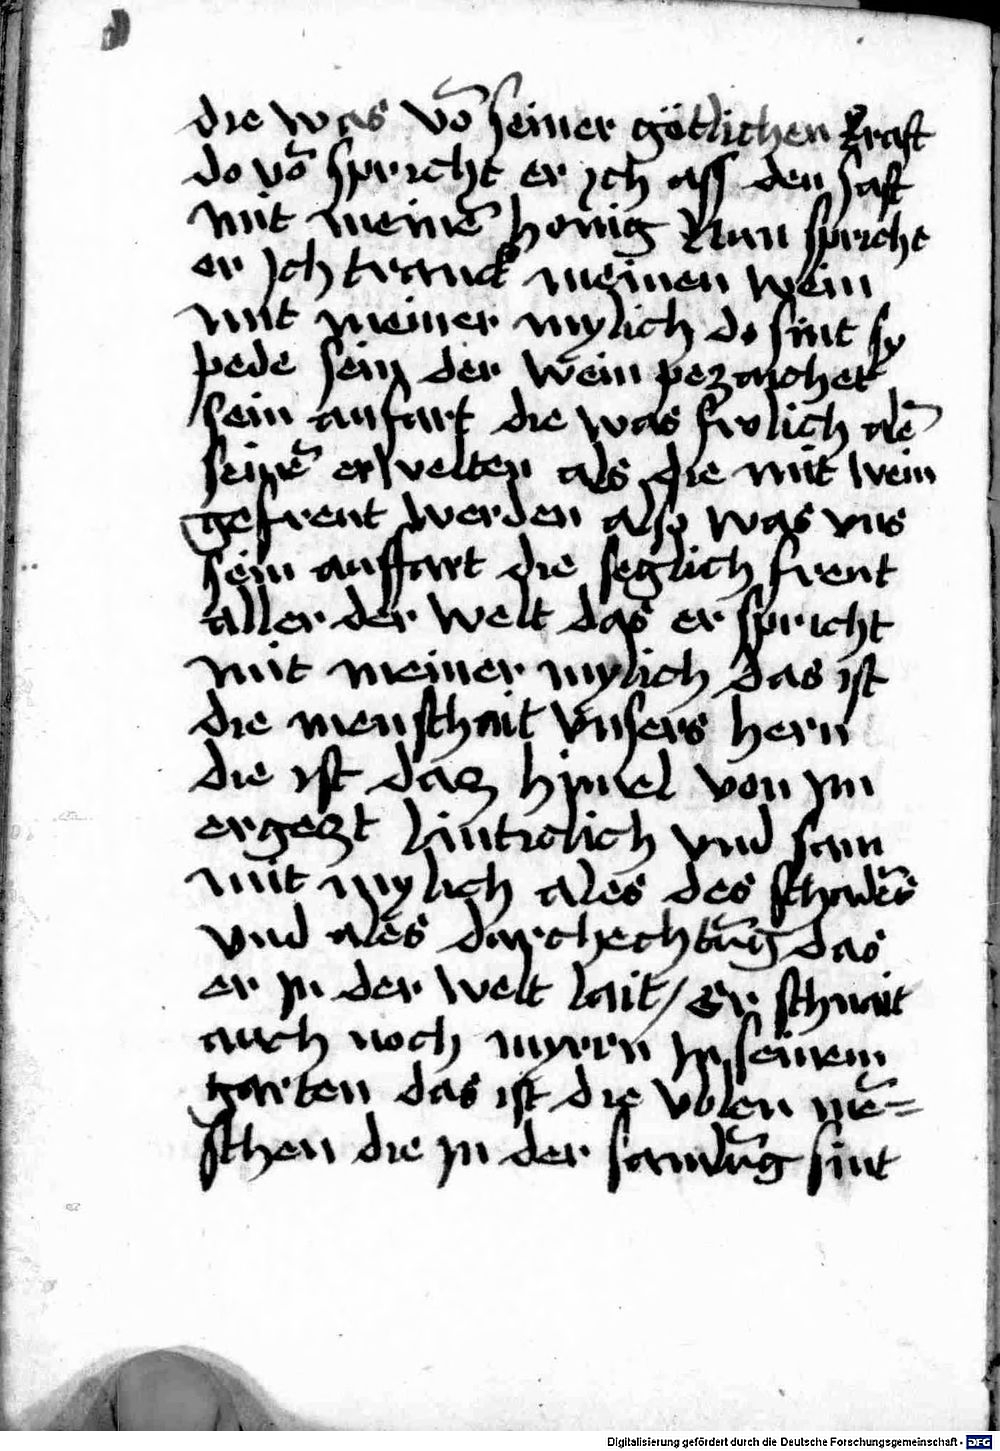 die was vō seiner götlichen kraft
do vō spricht er ich ass den saft
mit meinē honig Nun spricht
er Ich tranck meinen wein
mit meiner mylich do sint sy
pede sein der wein pezaichet
sein aufart die was frolich alē
seinē erwelten als die mit wein
gefreut werden also was vns
sein auffart die seglich freut
aller der welt das er spricht
mit meiner mylich das ist
die menschait vnsers hern
die ist daz himel von ym
ergeczt lautrolich vnd sam
mit mylich ales des schadēs
vnd ales durchechtūg das
er yn der welt lait / Er schnait
auch noch myrrn yn seinem
garten das ist die volen mē=
schen die yn der samlūg sint
Digitalisierung gefördert durch die Deutsche Forschungsgemeinschaft - DFG